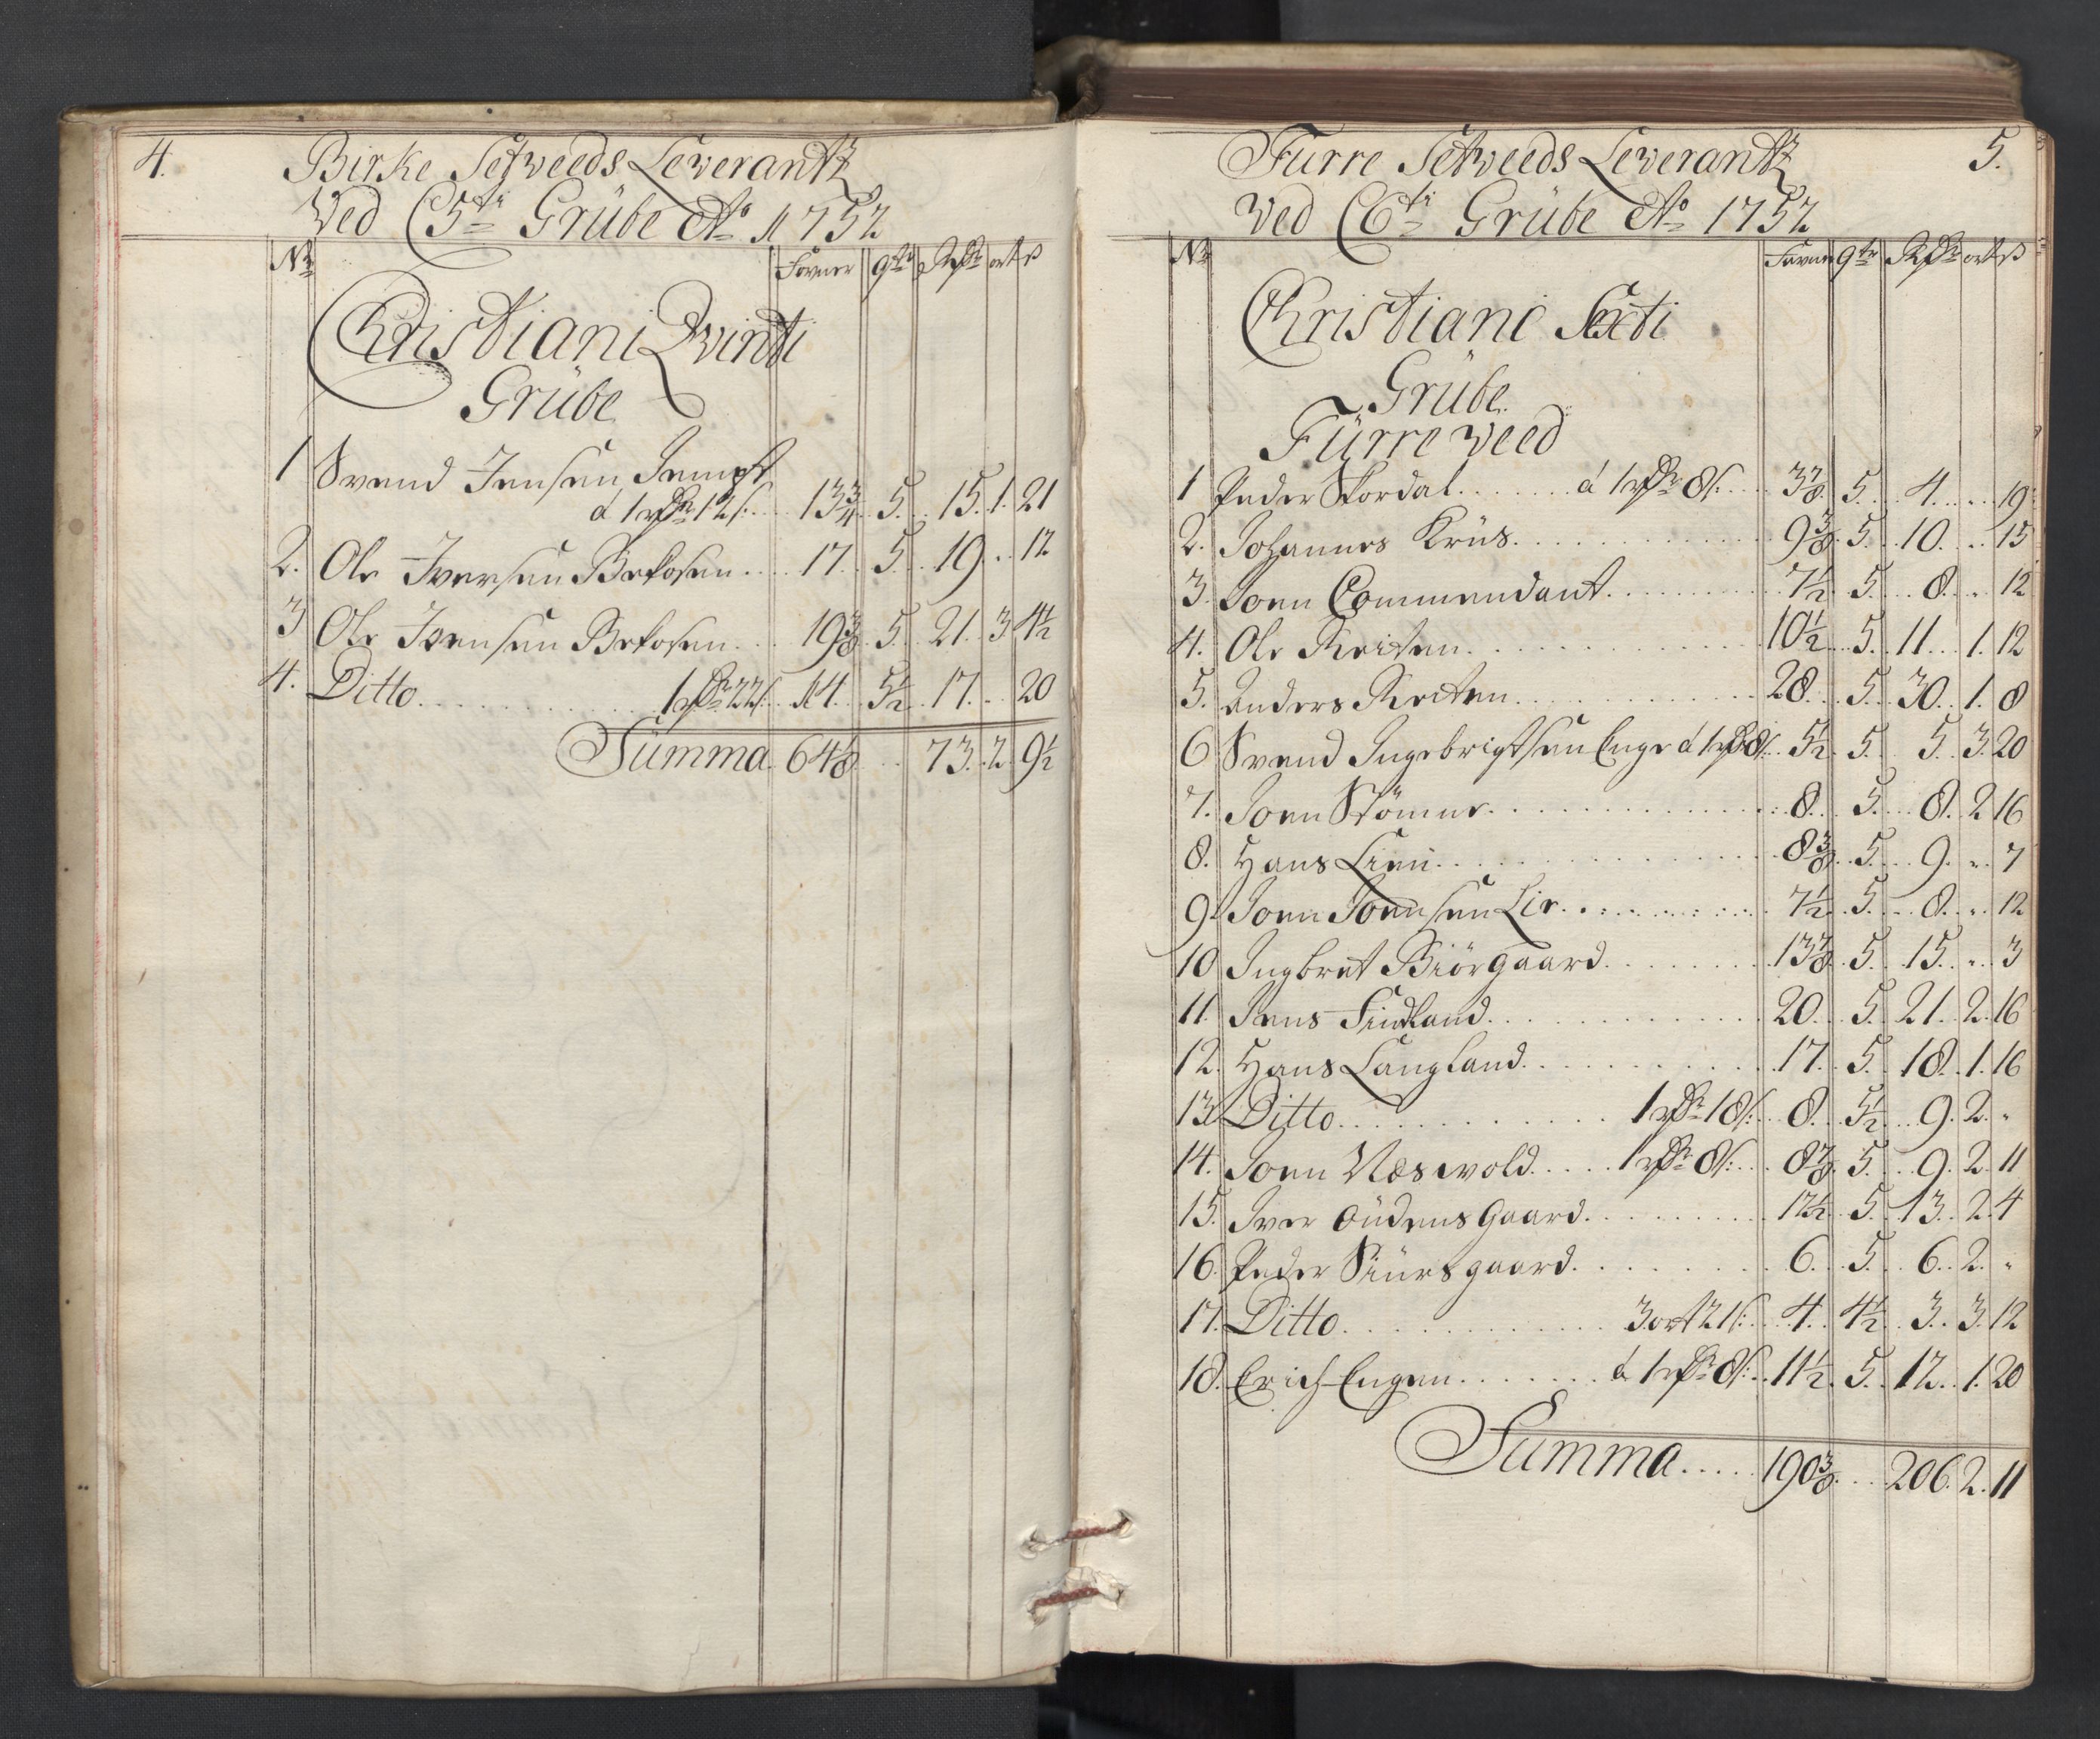 4.
Birke Setweeds Leverantz
Ved C 5ti Grübe Ao 1752
No Favner qtr Rdr ort ß
Christiani Qvinti
Grübe
1 Svend Jensen
á 1 rdr 12 ß: 13 3/4 5 15. 1. 21
2. Ole Iversen Brekosen 17 5 19 .. 12
3 Ole Joensen Brekosen 19 3/8 5 21. 3 4 1/2
4. Ditto 1 rdr 22 ß 14 5 1/2 17. .. 20
Summa 64 1/8 73. 2. 9 1/2
5.
Furre Setveeds Leverantz
Ved C 6ti Grübe Ao 1752
No Favner qtr Rdr ort ß
Christiani Sexti
Grübe
Fürre Veed
1 Peder Stordal á 1 rdr 8 ß: 3 7/8 5 4 .. 19
2. Johannes Krüs 9 3/8 5 10. .. 15
3. Joen Commendant 7 1/2 5. 8. .. 12
4. Ole Reiten 10 1/2 5. 11 1. 12
5. Anders Reiten 28 5. 30. 1. 8
6 Svend Ingebrigtsen Enge á 1 rdr 8 ß: 5 1/2 5. 5. 3. 20
7. Joen Stömne 8. 5. 8. 2 16
8. Hans Lien 8 3/8 5 9. .. 7
9. Joen Joensen Lie 7 1/2 5. 8. .. 12
10 Ingbret Biörgaard 13 7/8 5. 15. .. 3
11. Jens Findland 20. 5. 21. 2. 16
12. Hans Langland 17. 5. 18. 1. 16
13 Ditto 1 rdr 18 ß: 8. 5 1/2 9. 2. "
14. Joen Næswold 1 rdr 8 ß: 8 7/8 5. 9. 2. 11
15. Iver Oüdensgaard 12 1/2 5. 13. 2. 4
16. Peder Siursgaard 6. 5. 6. 2. "
17. Ditto 3 ort 21 ß: 4. 4 1/2 3. 3. 12
18. Erich Engen á 1 rdr 8 ß: 11 1/2 5. 12. 1. 20
Summa 190 3/8 206. 2. 11